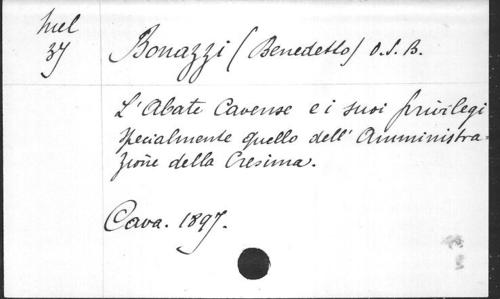 Mel
37
Bonazzi (Benedetto) O.S.B.
L'Abate Cavense e i suoi privilegi
specialmente quello dell'Amministra-
zione della Cresima.
Cava. 1897.